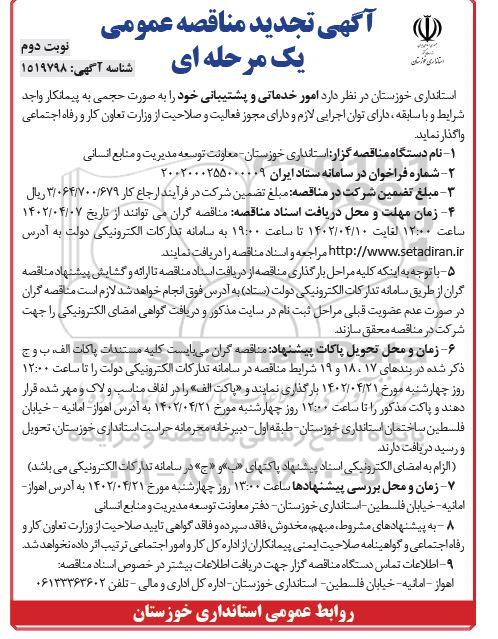 آگهی تجدید مناقصه عمومی
یک مرحله ای
نوبت دوم
شناسه آگهی: ۱۵۱۹۷۹۸
استانداری خوزستان
استانداری خوزستان در نظر دارد امور خدماتی و پشتیبانی خود را به صورت حجمی به پیمانکار واجد
شرایط و با سابقه ، دارای توان اجرایی لازم و دارای مجوز فعالیت و صلاحیت از وزارت تعاون کار و رفاه اجتماعی
واگذار نماید.
۱- نام دستگاه مناقصه گزار: استانداری خوزستان-معاونت توسعه مدیریت و منابع انسانی
۲- شماره فراخوان در سامانه ستاد ایران ۲۰۰۲۰۰۰۲۵۵۰۰۰۰۰۹
۳- مبلغ تضمین شرکت در مناقصه: مبلغ تضمین شرکت در فرآیند ارجاع کار ۳/۰۶۴/۷۰۰/۶۷۹ ریال
۴- زمان مهلت و محل دریافت اسناد مناقصه: مناقصه گران می توانند از تاریخ ۱۴۰۲/۰۴/۰۷
ساعت ۱۲:۰۰ لغایت ۱۴۰۲/۰۴/۱۰ تا ساعت ۱۹:۰۰ به سامانه تدارکات الکترونیکی دولت به آدرس
http://www.setadiran.ir مراجعه و اسناد مناقصه را دریافت نمایند.
۵- با توجه به اینکه کلیه مراحل بارگذاری مناقصه از دریافت اسناد مناقصه تا ارائه و گشایش پیشنهاد مناقصه
گران از طریق سامانه تدارکات الکترونیکی دولت (ستاد) به آدرس فوق انجام خواهد شد لازم است مناقصه گران
در صورت عدم عضویت قبلی مراحل ثبت نام در سایت مذکور و دریافت گواهی امضای الکترونیکی را جهت
شرکت در مناقصه محقق سازند.
۶- زمان و محل تحویل پاکات پیشنهاد: مناقصه گران می‌بایست کلیه مستندات پاکات الف، ب و ج
ذکر شده در بندهای ۱۷ ، ۱۸ و ۱۹ شرایط مناقصه در سامانه تدارکات الکترونیکی دولت را تا ساعت ۱۲:۰۰
روز چهارشنبه مورخ ۱۴۰۲/۰۴/۲۱ بارگذاری نمایند و «پاکت الف» را در لفاف مناسب و لاک و مهر شده قرار
دهند و پاکت مذکور را تا ساعت ۱۲:۰۰ روز چهارشنبه مورخ ۱۴۰۲/۰۴/۲۱ به آدرس اهواز- امانیه - خیابان
فلسطین ساختمان استانداری خوزستان- طبقه اول - دبیرخانه محرمانه حراست استانداری خوزستان، تحویل
و رسید دریافت دارند.
(الزام به امضای الکترونیکی اسناد پیشنهاد پاکتهای «ب» و «ج» در سامانه تدارکات الکترونیکی می باشد)
۷- زمان و محل بررسی پیشنهادها ساعت ۱۳:۰۰ روز چهارشنبه مورخ ۱۴۰۲/۰۴/۲۱ به آدرس اهواز-
امانیه- خیابان فلسطین- استانداری خوزستان- دفتر معاونت توسعه مدیریت و منابع انسانی
۸ - به پیشنهادهای مشروط، مبهم، مخدوش، فاقد سپرده و فاقد گواهی تایید صلاحیت از وزارت تعاون کار و
رفاه اجتماعی و گواهینامه صلاحیت ایمنی پیمانکاران از اداره کل کار و امور اجتماعی ترتیب اثر داده نخواهد شد.
۹- اطلاعات تماس دستگاه مناقصه گزار جهت دریافت اطلاعات بیشتر در خصوص اسناد مناقصه:
اهواز - امانیه- خیابان فلسطین- استانداری خوزستان- اداره کل اداری و مالی - تلفن ۰۶۱۳۳۳۶۳۶۰۲
روابط عمومی استانداری خوزستان